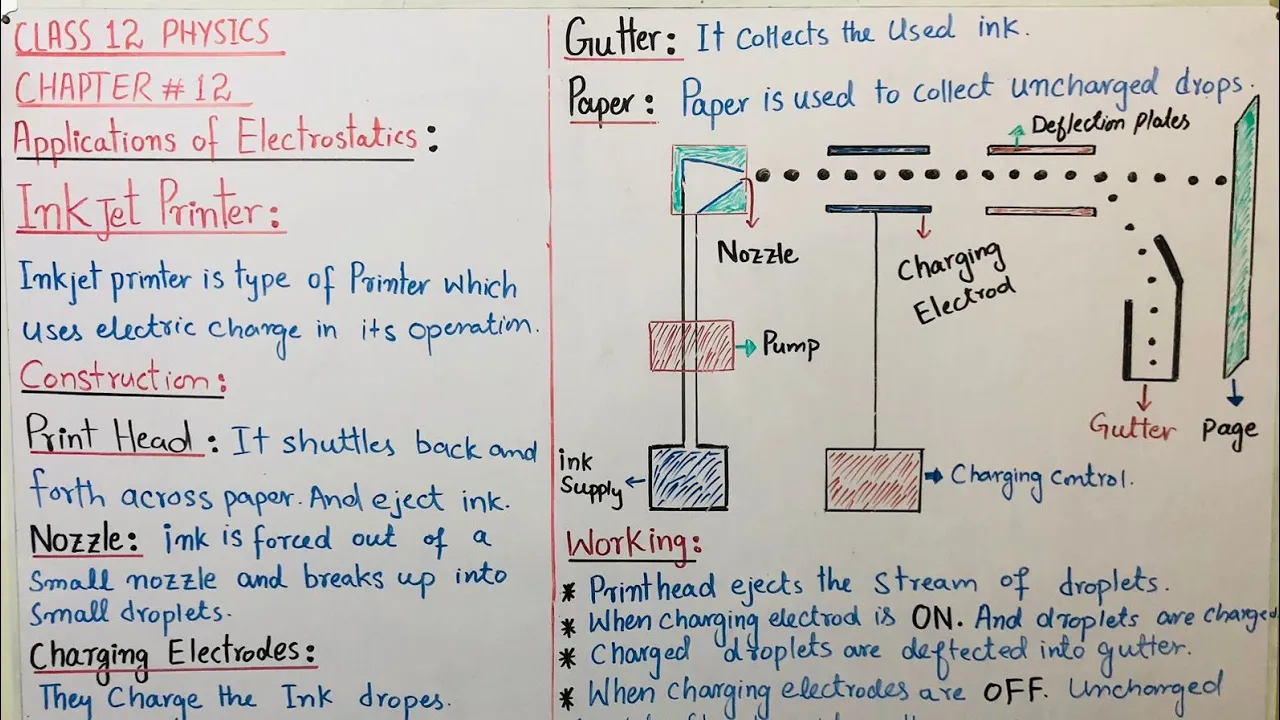 CLASS 12 PHYSICS
CHAPTER # 12
Applications of Electrostatics:
InkJet Printer:
Inkjet printer is type of Printer which
uses electric charge in its operation.
Construction:
Print Head: It shuttles back and
forth across paper. And eject ink.
Nozzle: ink is forced out of a
small nozzle and breaks up into
small droplets.
Charging Electrodes:
They Charge the Ink dropes.
Gutter: It Collects the Used ink.
Paper: Paper is used to collect uncharged drops.
Deflection Plates
Nozzle
Charging
Electrod
Pump
Gutter
Page
ink
Supply
Charging Control.
Working:
* Printhead ejects the Stream of droplets.
* When charging electrod is ON. And droplets are charged
* Charged droplets are deftected into gutter.
* When charging electrodes are OFF. Uncharged